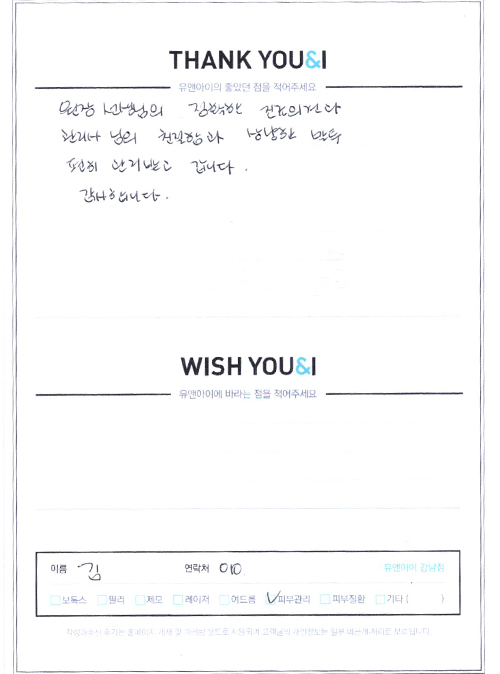 THANK YOU&I
유앤아이의 좋았던 점을 적어주세요
원장 선생님의 정확한 진료의견과
관리사 님의 친절함과 상냥한 말투
편히 관리받고 갑니다.
감사합니다.
WISH YOU&I
유앤아이에 바라는 점을 적어주세요
이름 김 연락처 010 유앤아이 강남점
보톡스 필러 제모 레이저 여드름 피부관리 피부질환 기타 ( )